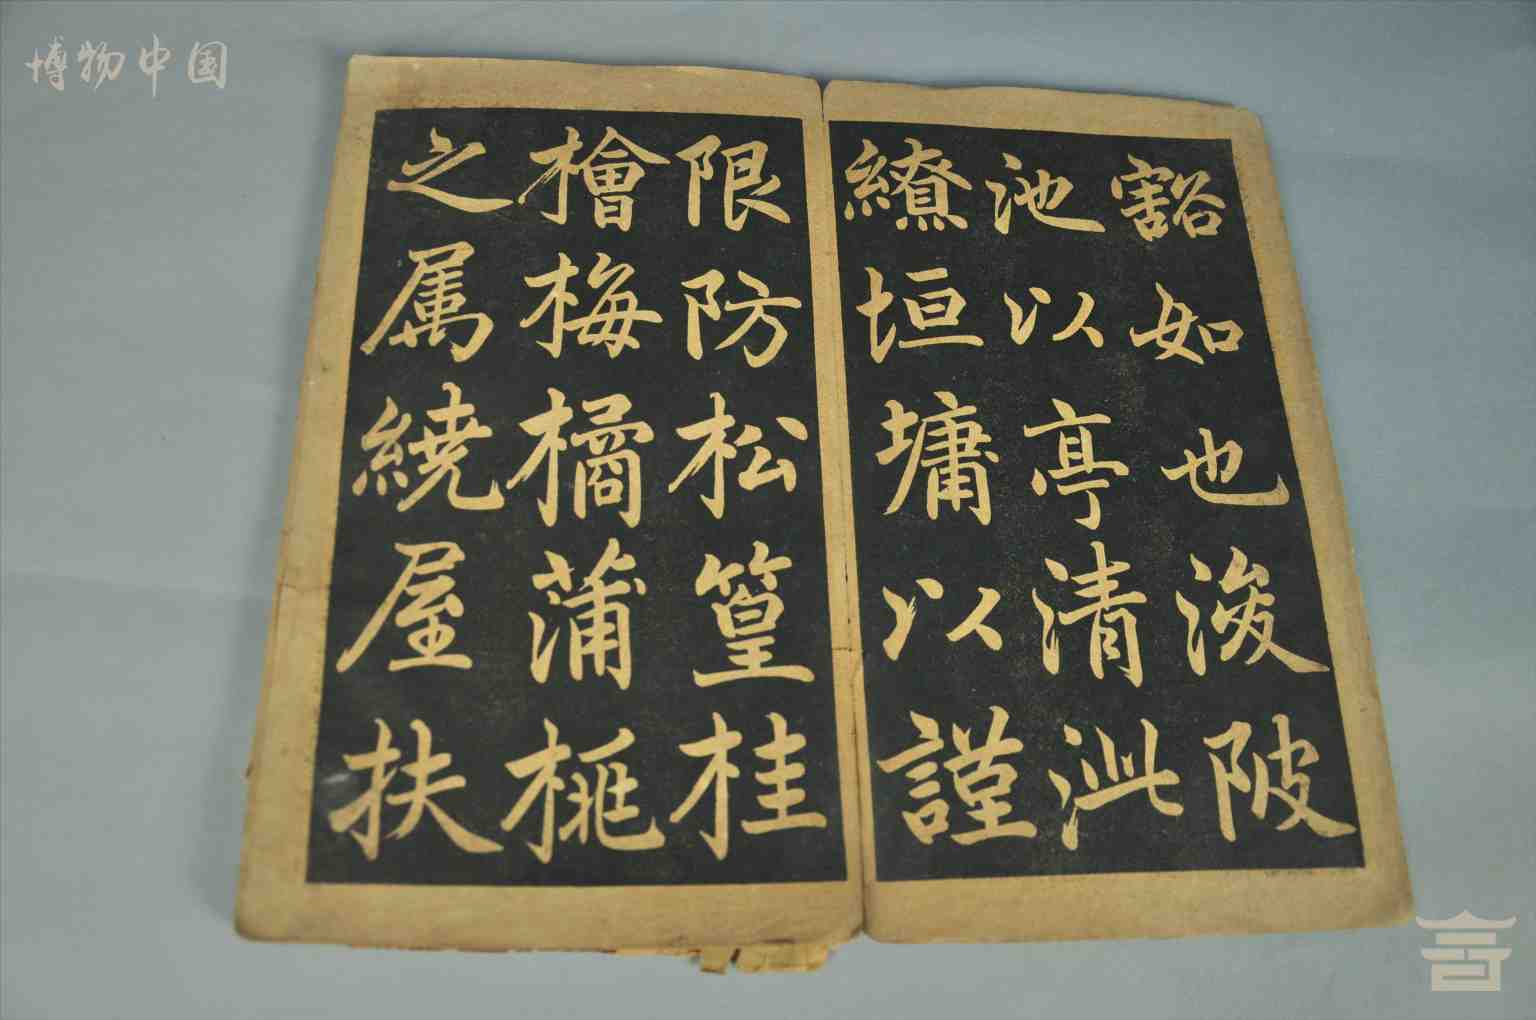 博物中国
豁如也浚陂
池以亭清泚
繚垣墉以謹
限防松篁桂
檜梅橘蒲桃
之属繞屋扶